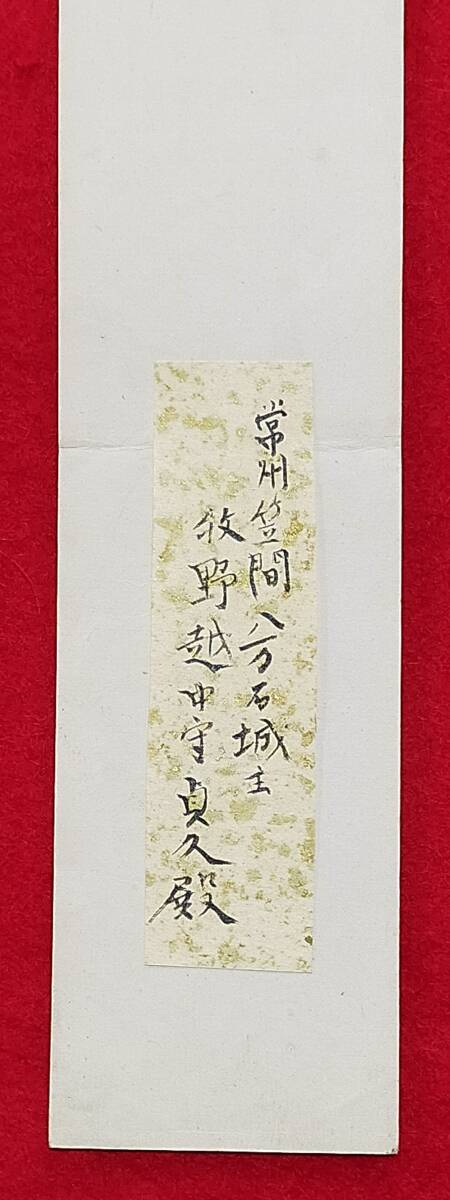 常州笠間八万石城主
牧野越中守貞久殿